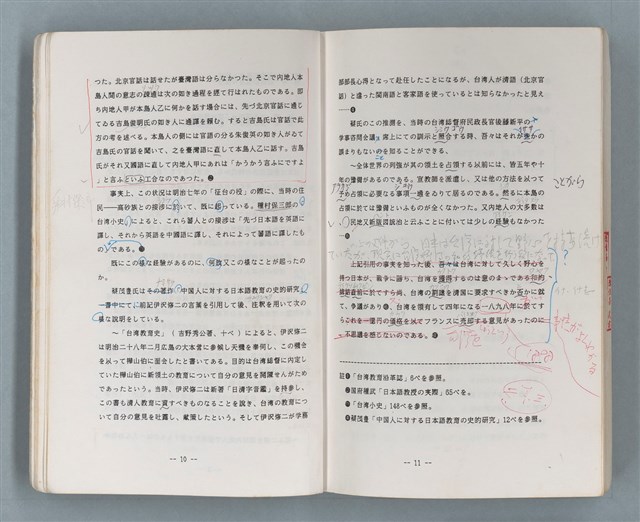 つた。北京官話は話せたが臺灣語は分らなかつた。そこで内地人本
島人間の意志の疎通は次の如き過程を経て行はれたものである。即
ち内地人甲が本島人乙に何かを話す場合には、先づ北京官話に通じ
てゐる吉島俊明氏の如き人に通譯を頼む。すると吉島氏は官話で此
方の考を述べる。本島人の側には官話の分る朱俊英の如き人がゐて
吉島氏の官話を聞いて、之を臺灣語に直して本島人乙に話す。吉島
氏がそれ又國語に直して内地人甲にあれは「かうかう言ふにですよ
」と言ふといふ工合なのであつた。❷
事実上、この状況は明治七年の「征台の役」の際に、当時の住
民――高砂族との接渉に於いて、既に起っている。種村保三郎の
台湾小史」によると、これら蕃人との接渉は「先づ日本語を英語に
譯し、それから英語を中國語に譯し、それによって蕃語に譯したも
の」である。❸
既にこの様な経験があるのに、何故又この様なことが起ったの
か。
蔡茂豊氏はその著作「中国人に対する日本語教育の史的研究」
一書中にて、前記伊沢修二の言葉を引用して後、註釈を用いて次の
様な説明をしている。
～「台湾教育史」(吉野秀公著、十ペ)によると、伊沢修二
は明治二十八年二月広島の大本営に参候し天機を奉伺し、この機会
を以って樺山伯に面会したと書いてある。目的は台湾総督に内定し
ていた樺山伯に新領土の教育について自分の意見を開陳せんがため
であったという。当時、伊沢修二は新著「日清字音鑑」を持参し、
この書も清人教育に資すべきものなることを説き、台湾の教育につ
いて自分の意見を吐露し、献策したという。そして伊沢修二が学務
-- 10 --
部部長心得となって赴任したことになるが、台湾人が清語(北京官
話)と違った閩南語と客家語を使っているとは知らなかったと見え
―❹
蔡氏のこの推測を、当時の台湾総督府民政長官後藤新平の
学事諮問会議」席上にての訓示と照合する時、吾々はそれが衷かの
誤まりもないのを知ることができる。
～全体世界の列強が其の領土を占領する以前には、皆五年や十
年の準備があるのである。宣教師を派遣し、又は他の方法を以つて
予め占領に必須なる事項一通をなりて居るのである。然るに本島の
占領に於ては準備といふものが全くなかった。又内地人の大多数は
民地又新版図統治と云ふことに付いては少しの経験もなかつた
―❺
ことがら
上記引用の事実を知った後、吾々は台湾に対して久しく野心を
持つ日本が、戦争に勝り、台湾を獲得するのは意のまゝである和約
締結直前に於いてすら尚、台湾の割譲を清国に要求すべきか否かに就
て、争議があり❻、台湾を領有して四年になる一八九八年に於いてす
らこれを一億円の価格を以てフランスに売却する意見があったのに
不思議を感じないのである。❼
註❶「台湾教育沿革誌」6ペを参照。
❷国府種武「日本語教授の実際」55ペを参照。
❸「台湾小史」148ペを参照。
❹蔡茂豊「中国人に対する日本語教育の史的研究」12ペを参照。
-- 11 --